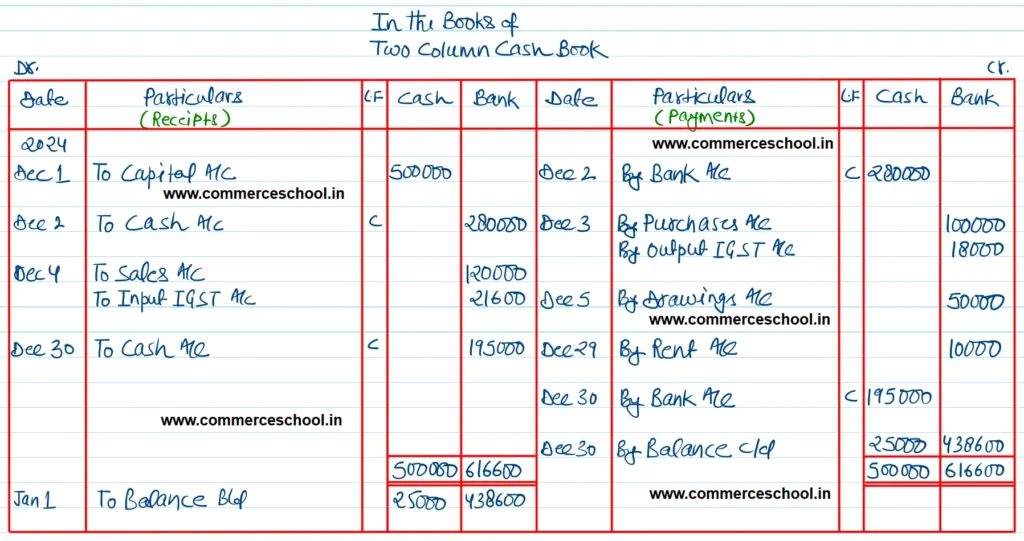 In the Books of
Two Column Cash Book
Dr. Cr.
Date Particulars LF Cash Bank Date Particulars LF Cash Bank
(Receipts) (Payments)
2024 www.commerceschool.in
Dec 1 To Capital A/c 500000 Dec 2 By Bank A/c C 280000
www.commerceschool.in
Dec 2 To Cash A/c C 280000 Dec 3 By Purchases A/c 100000
By Output IGST A/c 18000
Dec 4 To Sales A/c 120000
To Input IGST A/c 21600 Dec 5 By Drawings A/c 50000
www.commerceschool.in
Dec 30 To Cash A/c C 195000 Dec 29 By Rent A/c 10000
Dec 30 By Bank A/c C 195000
www.commerceschool.in
Dec 30 By Balance c/d 25000 438600
500000 616600 500000 616600
Jan 1 To Balance B/d 25000 438600 www.commerceschool.in